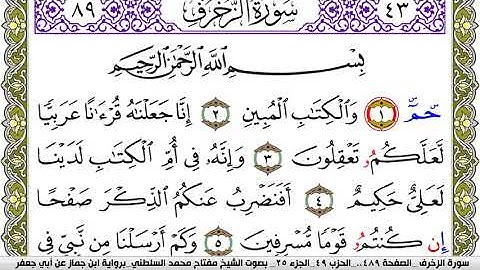 ٨٩ سورة الزخرف ٤٣
بِسْمِ اللَّهِ الرَّحْمَٰنِ الرَّحِيمِ
حمٓ ١ وَالْكِتَٰبِ الْمُبِينِ ٢ إِنَّا جَعَلْنَٰهُ قُرْءَٰنًا عَرَبِيًّا
لَّعَلَّكُمُۥ تَعْقِلُونَ ٣ وَإِنَّهُۥ فِىٓ أُمِّ الْكِتَٰبِ لَدَيْنَا
لَعَلِىٌّ حَكِيمٌ ٤ أَفَنَضْرِبُ عَنكُمُ الذِّكْرَ صَفْحًا
إِن كُنتُمُۥ قَوْمًا مُّسْرِفِينَ ٥ وَكَمْ أَرْسَلْنَا مِن نَّبِىٍّ فِى
سورة الزخرف _الصفحة ٤٨٩_ الحزب ٤٩_ الجزء ٢٥ _ بصوت الشيخ مفتاح محمد السلطني_ برواية ابن جماز عن أبي جعفر